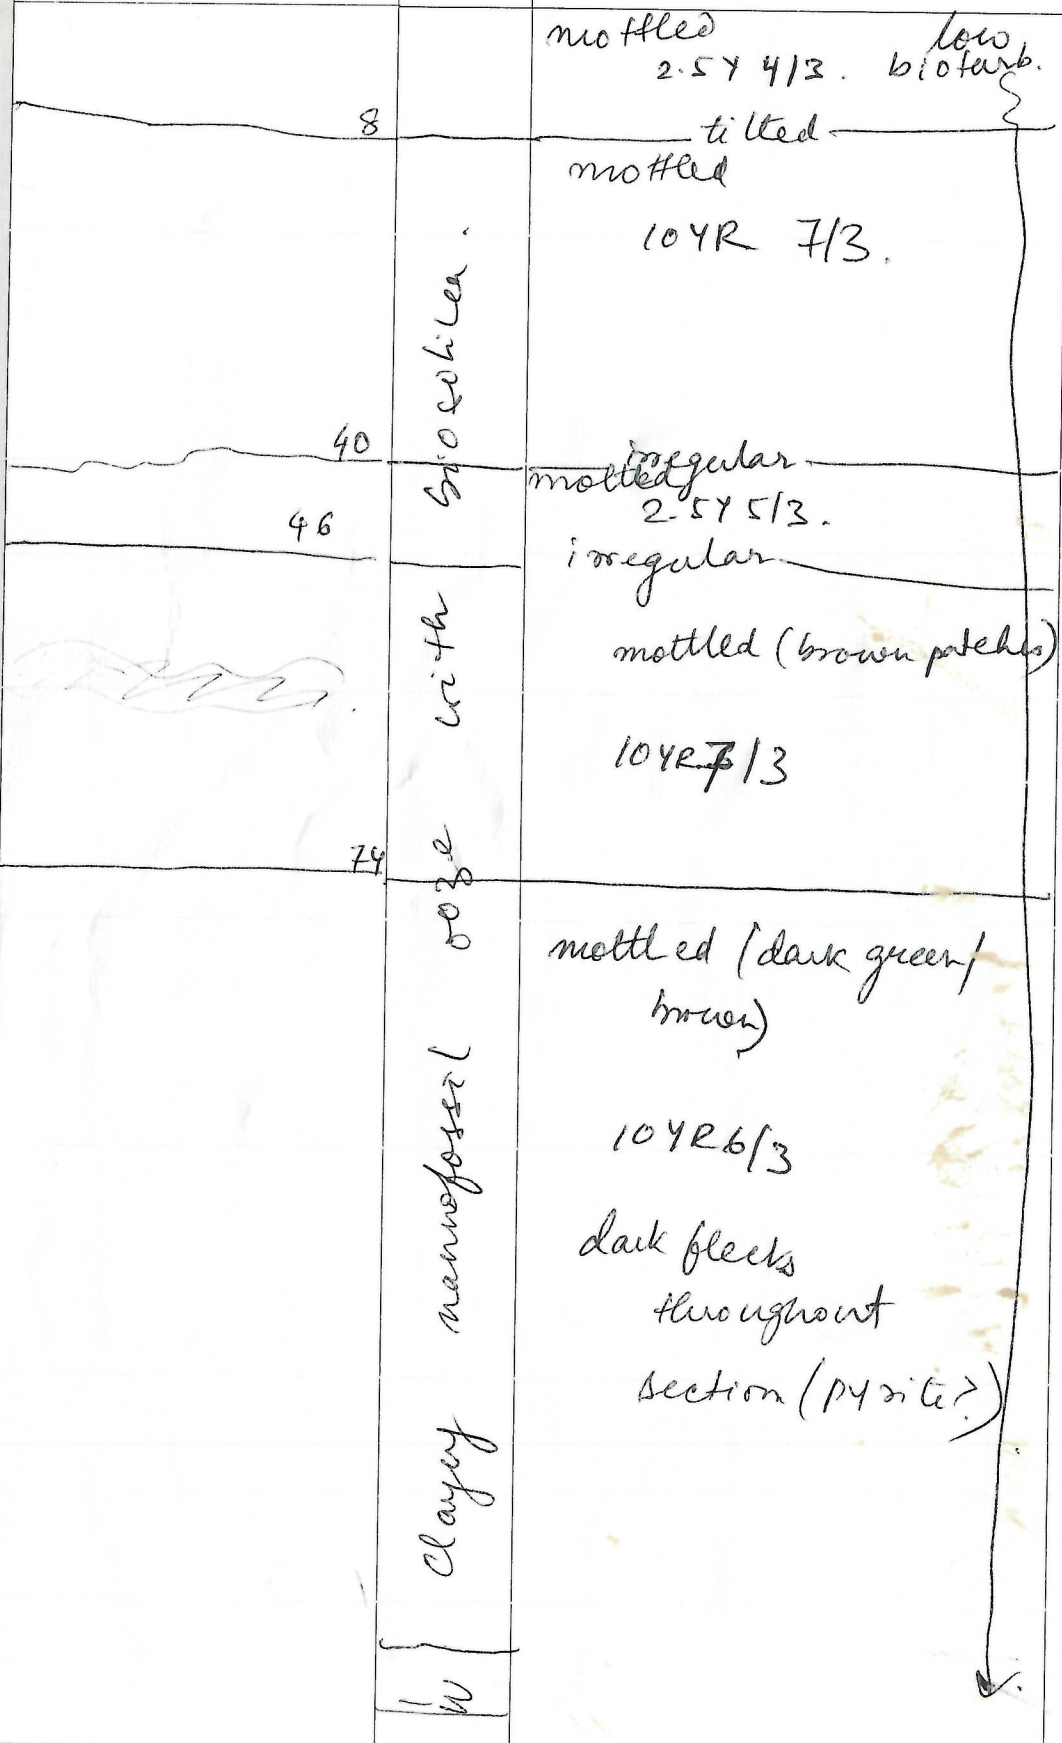 mottled low
2.5Y 4/3. bioturb.
8
tilted
mottled
10YR 7/3.
40
irregular
mottled
2.5Y 5/3.
46
irregular
mottled (brown patches)
10YR 7/3
74
mottled (dark green/
brown)
10YR 6/3
dark flecks
throughout
section (pyrite?)
Clayey nannofossil ooze with biosilica.
IW